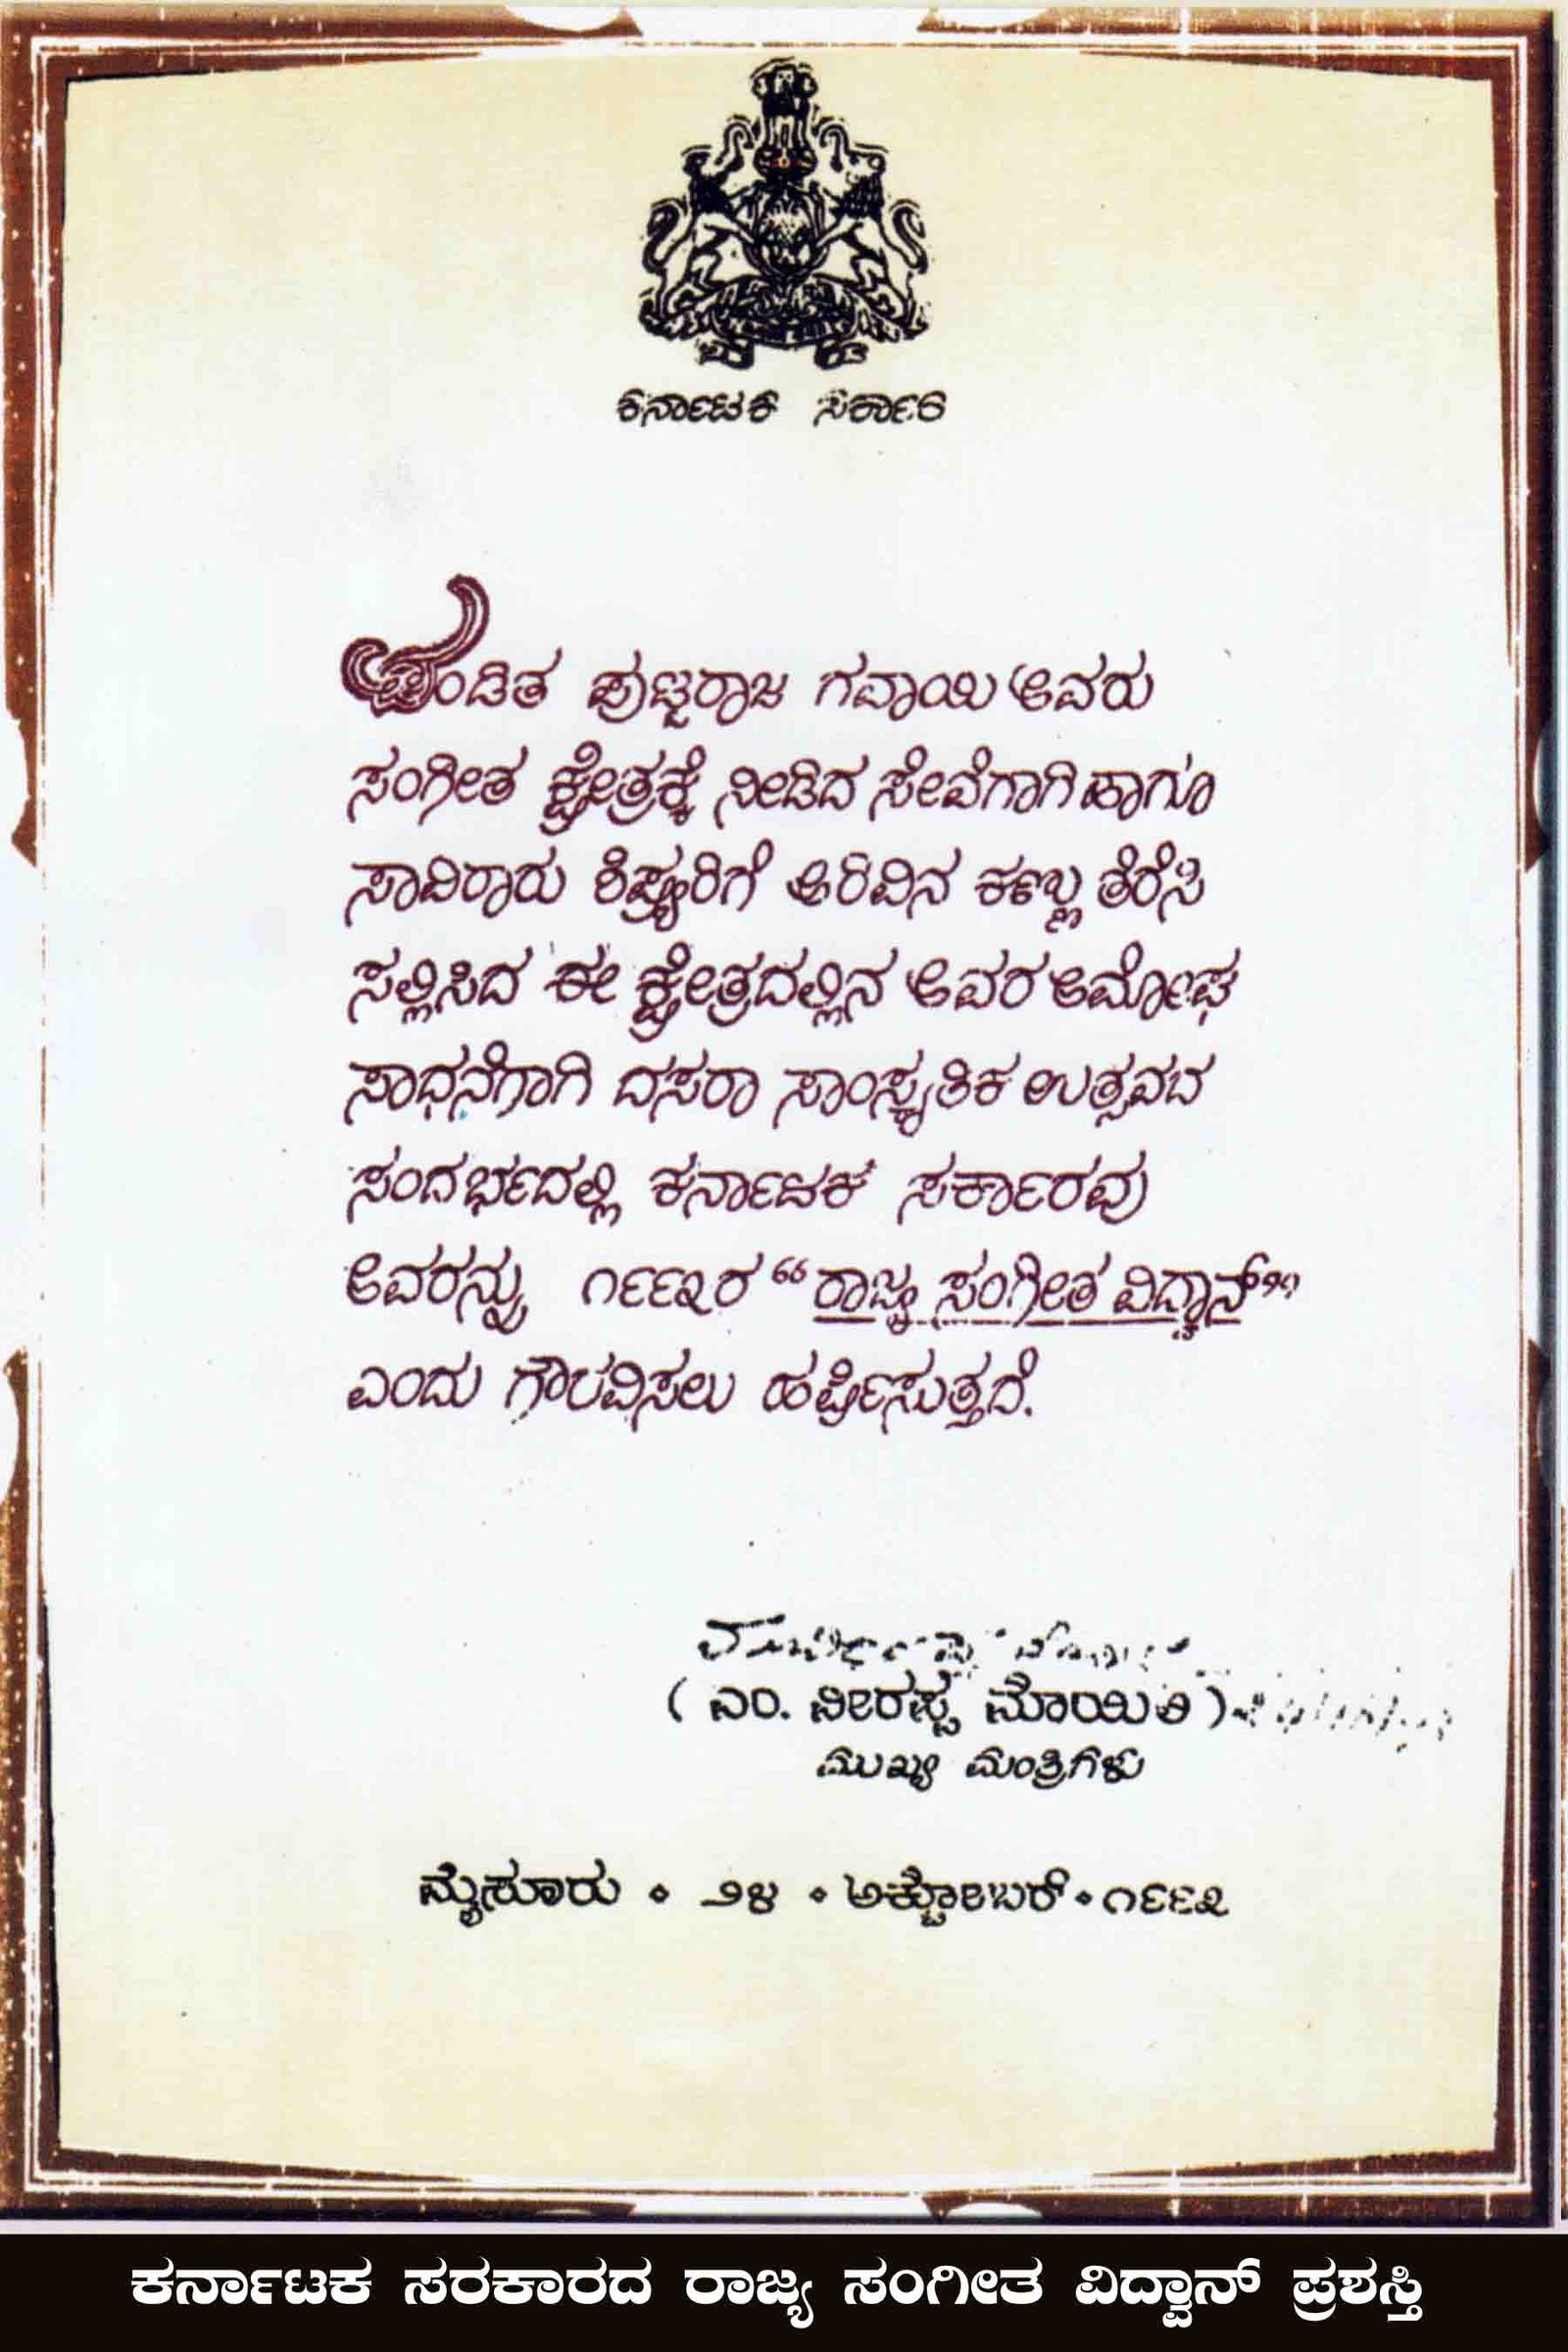 ಕರ್ನಾಟಕ ಸರ್ಕಾರ
ಪಂಡಿತ ಪುಟ್ಟರಾಜ ಗವಾಯಿ ಅವರು
ಸಂಗೀತ ಕ್ಷೇತ್ರಕ್ಕೆ ನೀಡಿದ ಸೇವೆಗಾಗಿ ಹಾಗೂ
ಸಾವಿರಾರು ಶಿಷ್ಯರಿಗೆ ಅರಿವಿನ ಕಣ್ಣು ತೆರೆಸಿ
ಸಲ್ಲಿಸಿದ ಈ ಕ್ಷೇತ್ರದಲ್ಲಿನ ಅವರ ಅಮೋಘ
ಸಾಧನೆಗಾಗಿ ದಸರಾ ಸಾಂಸ್ಕೃತಿಕ ಉತ್ಸವದ
ಸಂದರ್ಭದಲ್ಲಿ ಕರ್ನಾಟಕ ಸರ್ಕಾರವು
ಅವರನ್ನು ೧೯೯೩ರ "ರಾಜ್ಯ ಸಂಗೀತ ವಿದ್ವಾನ್"
ಎಂದು ಗೌರವಿಸಲು ಹರ್ಷಿಸುತ್ತದೆ.
(ಎಂ. ವೀರಪ್ಪ ಮೊಯಿಲಿ)
ಮುಖ್ಯ ಮಂತ್ರಿಗಳು
ಮೈಸೂರು • ೨೪ • ಅಕ್ಟೋಬರ್ • ೧೯೯೩
ಕರ್ನಾಟಕ ಸರಕಾರದ ರಾಜ್ಯ ಸಂಗೀತ ವಿದ್ವಾನ್ ಪ್ರಶಸ್ತಿ